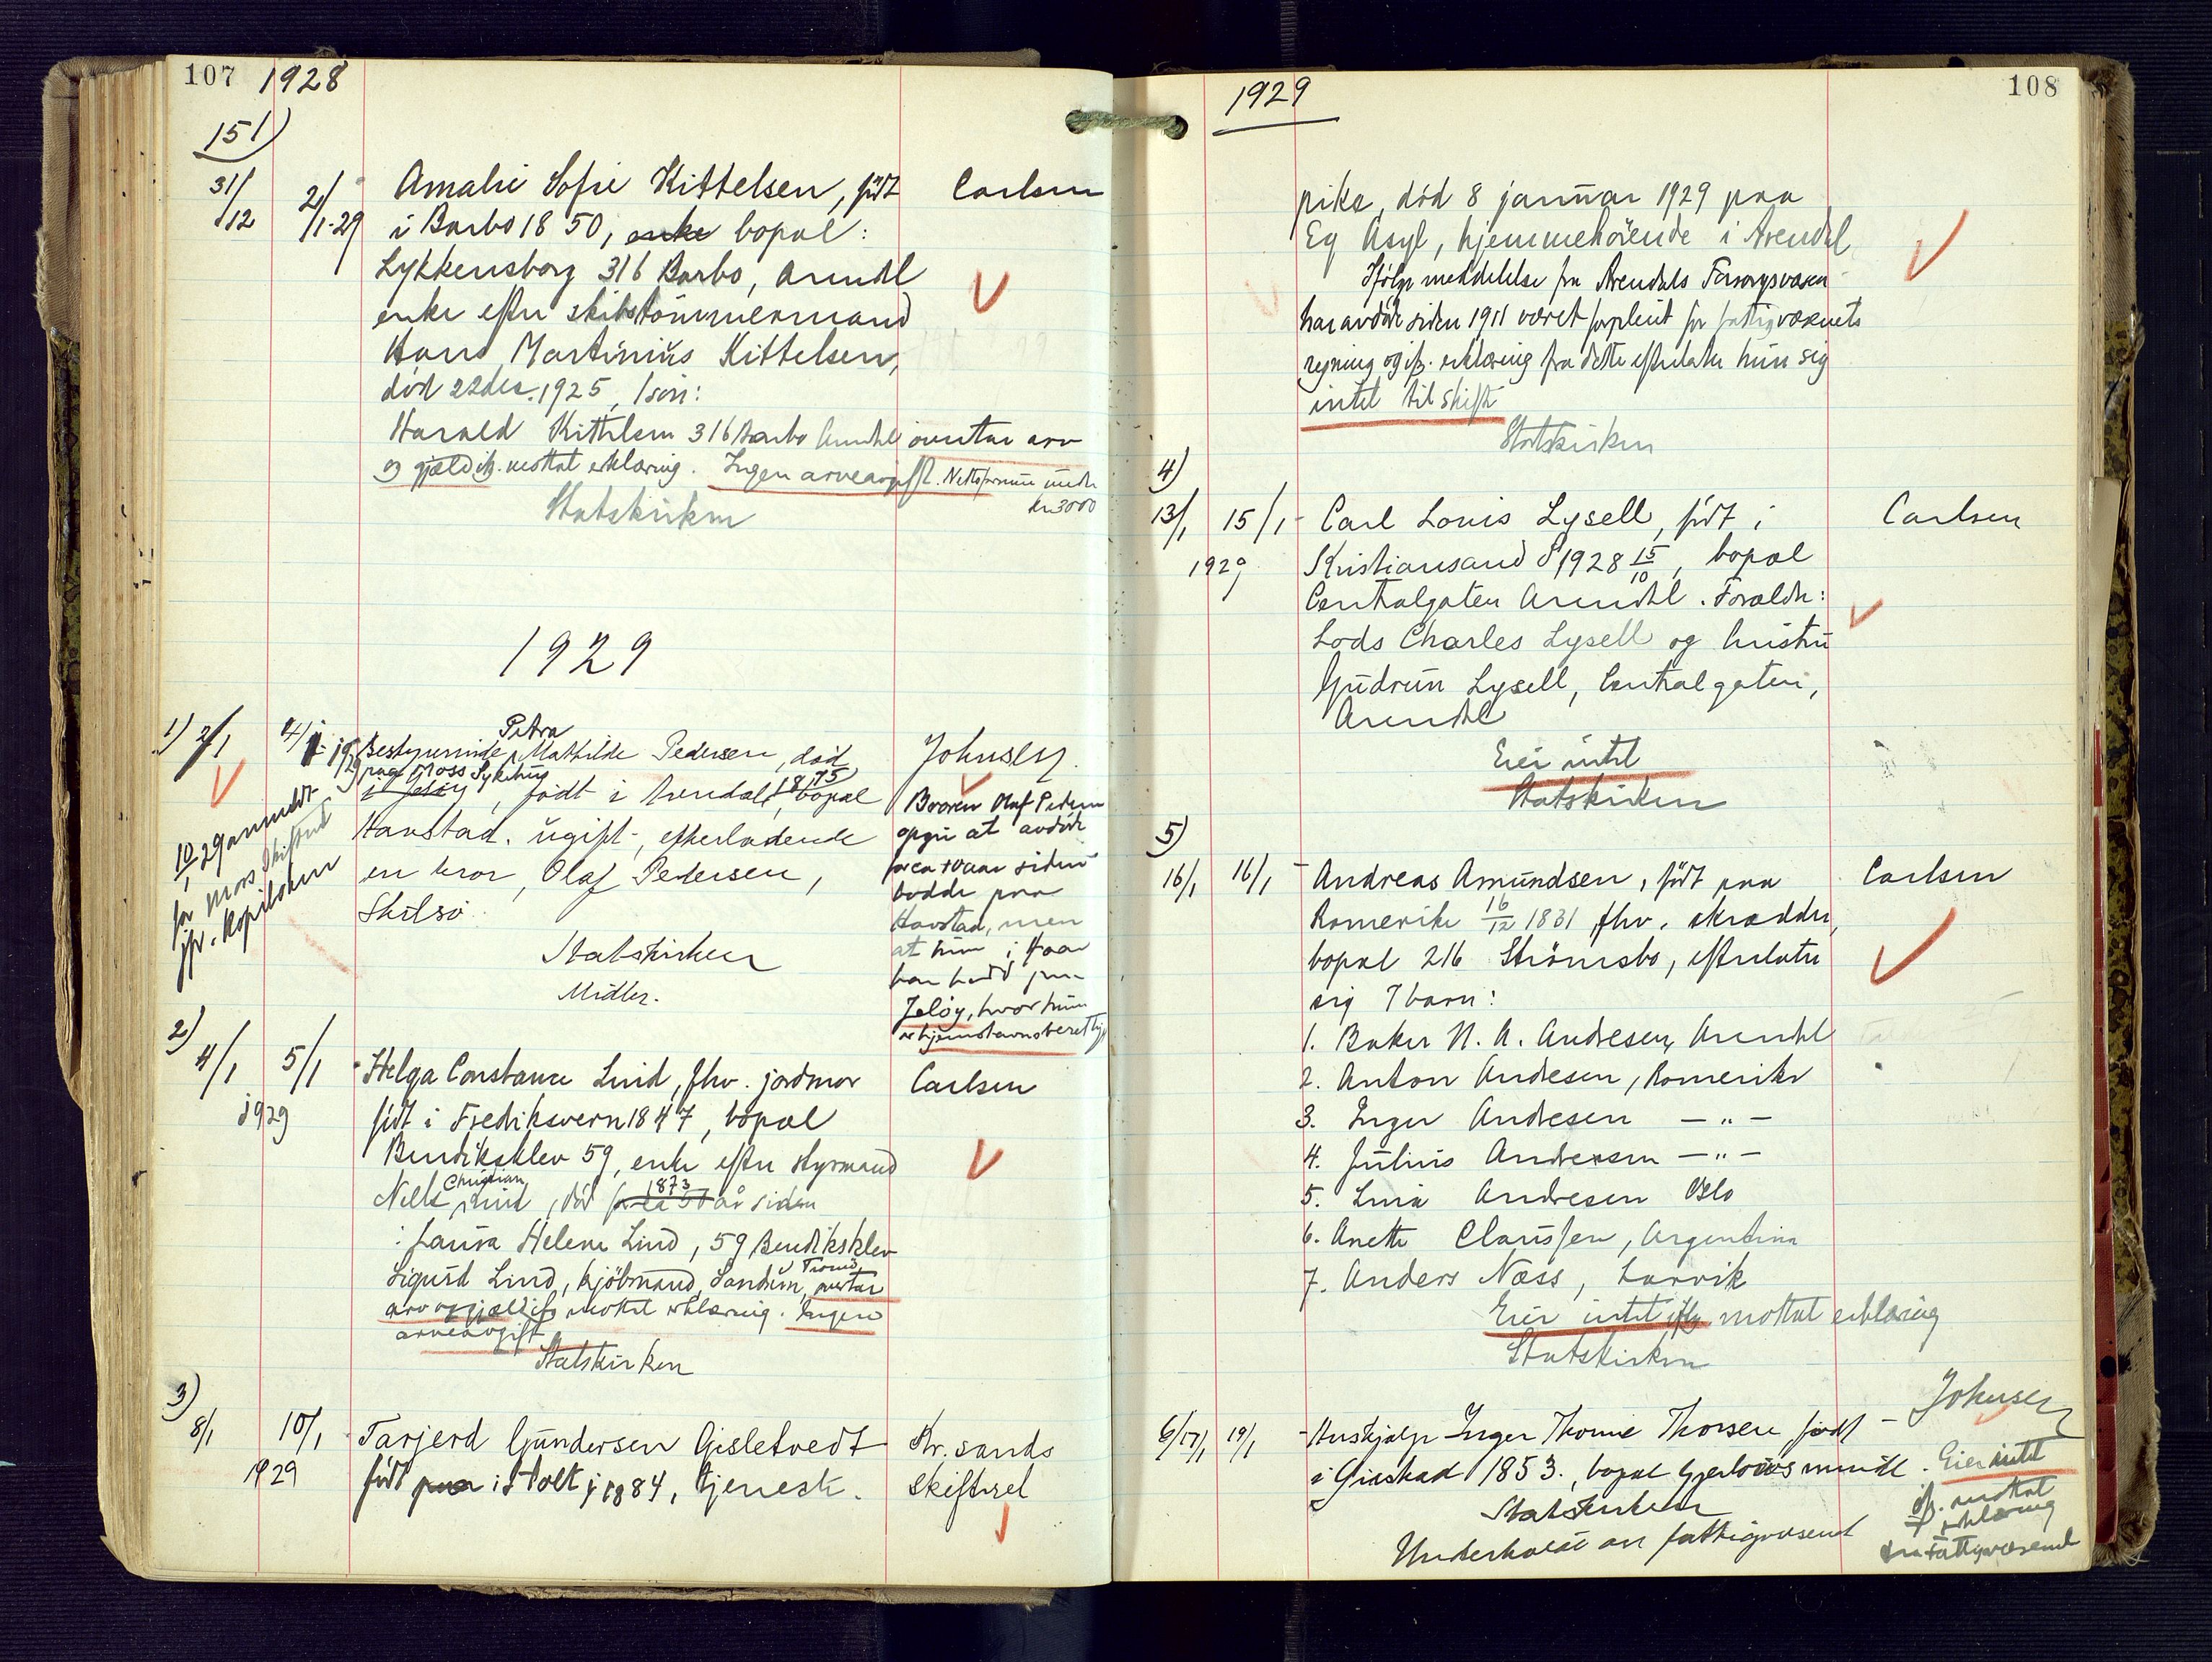 107 1928
151)
31/12 2/1-29 Amalie Sofie Kittelsen, født Carlsen
i Barbo 1850, enke bopæl:
Lykkensborg 316 Barbo, Arendal
enke efter skibstømmermand
Hans Martinius Kittelsen,
død 22 des. 1925, 1 søn:
Harald Kittelsen 316 Barbo Arendal overtar arv
og gjæld ifg. mottat erklæring. Ingen arveavgift. Nettoformue under
kr. 3000
Statskirken
1929
1) 2/1 4/1-1929 Bestyrerinde Petra Mathilde Pedersen, død Johnsen
paa Moss Sykehus
i Jeløy, født i Arendal 1875, bopæl
Havstad, ugift, efterladende
en bror, Olaf Pedersen,
Skilsø
Statskirken
Midler.
10/1 29 anmeldt
for Moss Skifteret
jfr. kopiboken
Broren Olaf Pedersen
opgir at avdøde
for ca 10 aar siden
bodde paa
Havstad, men
at hun i 4 aar
har bodd paa
Jeløy, hvor hun
er hjemstavnsberettiget
2)
4/1 5/1 Helga Constance Lind, fhv. jordmor Carlsen
1929 født i Fredriksvern 1847, bopæl
Bendiksklev 59, enke efter styrmand
Niels Christian Lind, død for ca 50 år siden 1873
: Laura Helene Lind, 59 Bendiksklev
Sigurd Lind, kjøbmand, Sandum, Tromø, overtar
arv og gjæld ifg mottat erklæring. Ingen
arveavgift
Statskirken
3)
8/1 10/1 Tarjerd Gundersen Gisletvedt Kr.sands
1929 født paa i Holt i 1884, tjeneste. skifteret
1929 108
pike, død 8 januar 1929 paa
Eg Asyl, hjemmehørende i Arendal
Ifølge meddelelse fra Arendals Forsorgsvæsen
har avdøde siden 1911 været forpleiet for fattigvæsenets
regning og ifg. erklæring fra dette efterlater hun sig
intet til skifte
Statskirken
4)
13/1 15/1 Carl Louis Lysell, født i Carlsen
1929 Kristiansand S 1928 15/10, bopæl
Centralgaten Arendal. Forældre:
Lods Charles Lysell og hustru
Gudrun Lysell, Centralgaten,
Arendal
Eier intet
Statskirken
5)
16/1 16/1 Andreas Amundsen, født paa Carlsen
Romerike 16/12 1831 fhv. skrædder,
bopæl 216 Strømsbo, efterlater
sig 7 barn:
1. Baker N. A. Andresen, Arendal
2. Anton Andresen, Romerike
3. Inger Andresen — " —
4. Julius Andresen — " —
5. Lina Andresen Oslo
6. Anette Claussen, Argentina
7. Anders Næss, Larvik
Eier intet ifg mottat erklæring
Statskirken
6/17/1 19/1 Hushjælp Inger Thomie Thorsen født Johnsen
i Gjerstad 1853., bopæl Gjerløwsminde. Eier intet
Statskirken
Underholdt av fattigvæsenet
ifg. mottat
erklæring
fra Fattigvæsenet